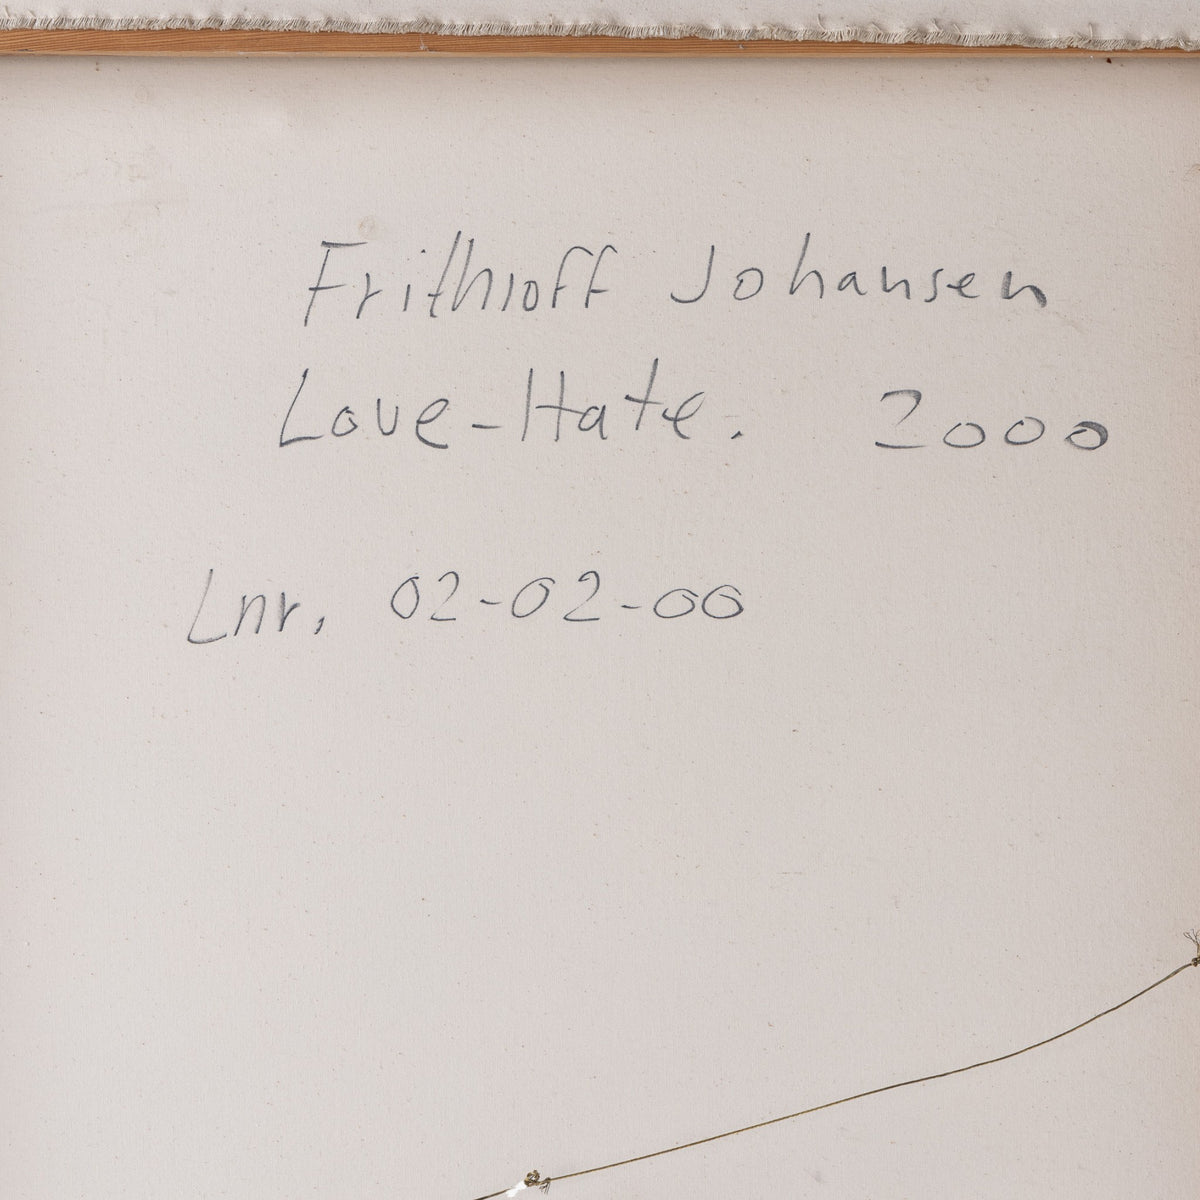 Frithioff Johansen
Love-Hate. 2000
Lnr. 02-02-00